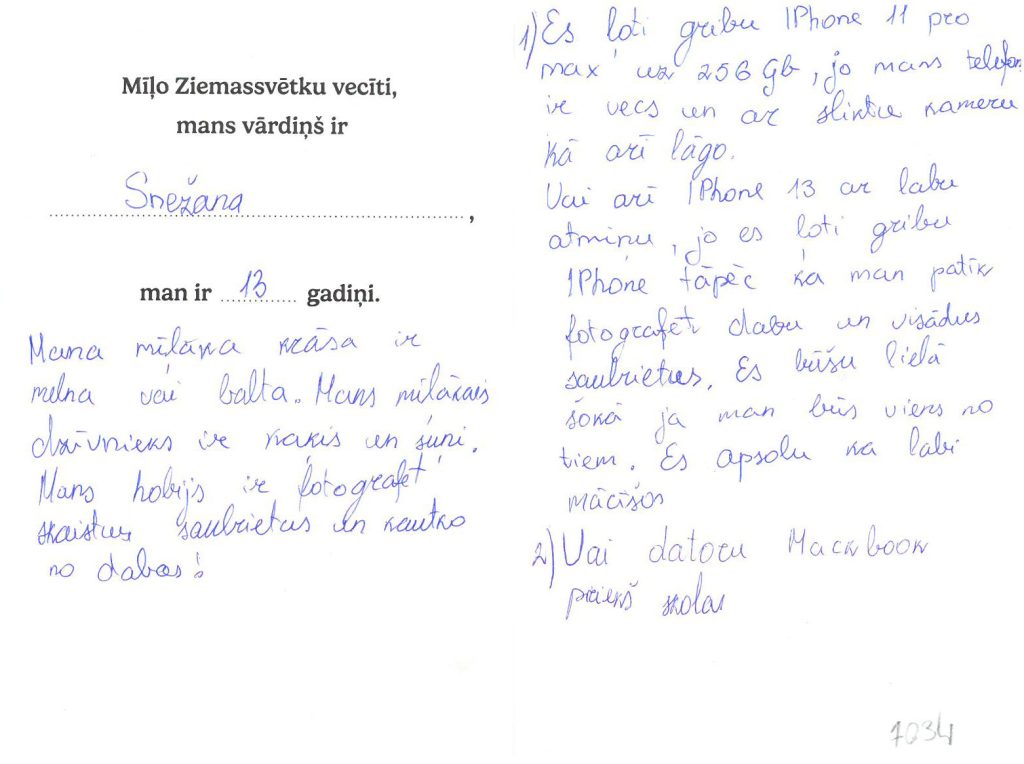 Mīļo Ziemassvētku vecīti,
mans vārdiņš ir
Snežana,
man ir 13 gadiņi.
Mana mīļāka krāsa ir
melna vai balta. Mans mīļākais
dzīvnieks ir kaķis un suņi.
Mans hobijs ir fotografēt
skaistus saulrietus un kautko
no dabas!
1) Es ļoti gribu IPhone 11 pro
max uz 256 Gb, jo mans telefon
ir vecs un ar sliktu kameru
kā arī lāgo.
Vai arī IPhone 13 ar labu
atmiņu, jo es ļoti gribu
IPhone tāpēc ka man patīk
fotografēt dabu un visādus
saulrietus. Es būšu lielā
šokā ja man būs viens no
tiem. Es apsolu ka labi
mācīšos
2) Vai datoru Mackbook
priekš skolas
7034